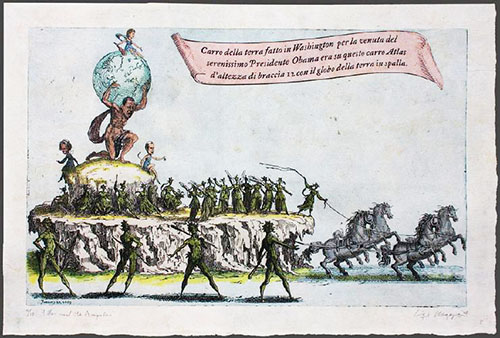 Carro della terra fatto in Washington per la venuta del
serenissimo Presidente Obama era su questo carro Atlas
d'altezza di braccia 12 con il globo della terra in spalla.